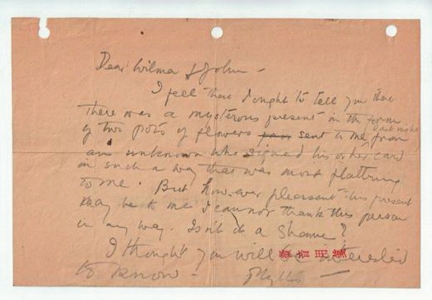 Dear Wilma & John -
I feel that I ought to tell you that
there was a mysterious present in the form
of two pots of flowers sent to me from
last night
an unknown who signed his or her card
in such a way that was most flattering
to me. But however pleasent this present
may be to me I cannot thank this person
in any way. Isn't it a shame?
I thought you will be interested
to know -